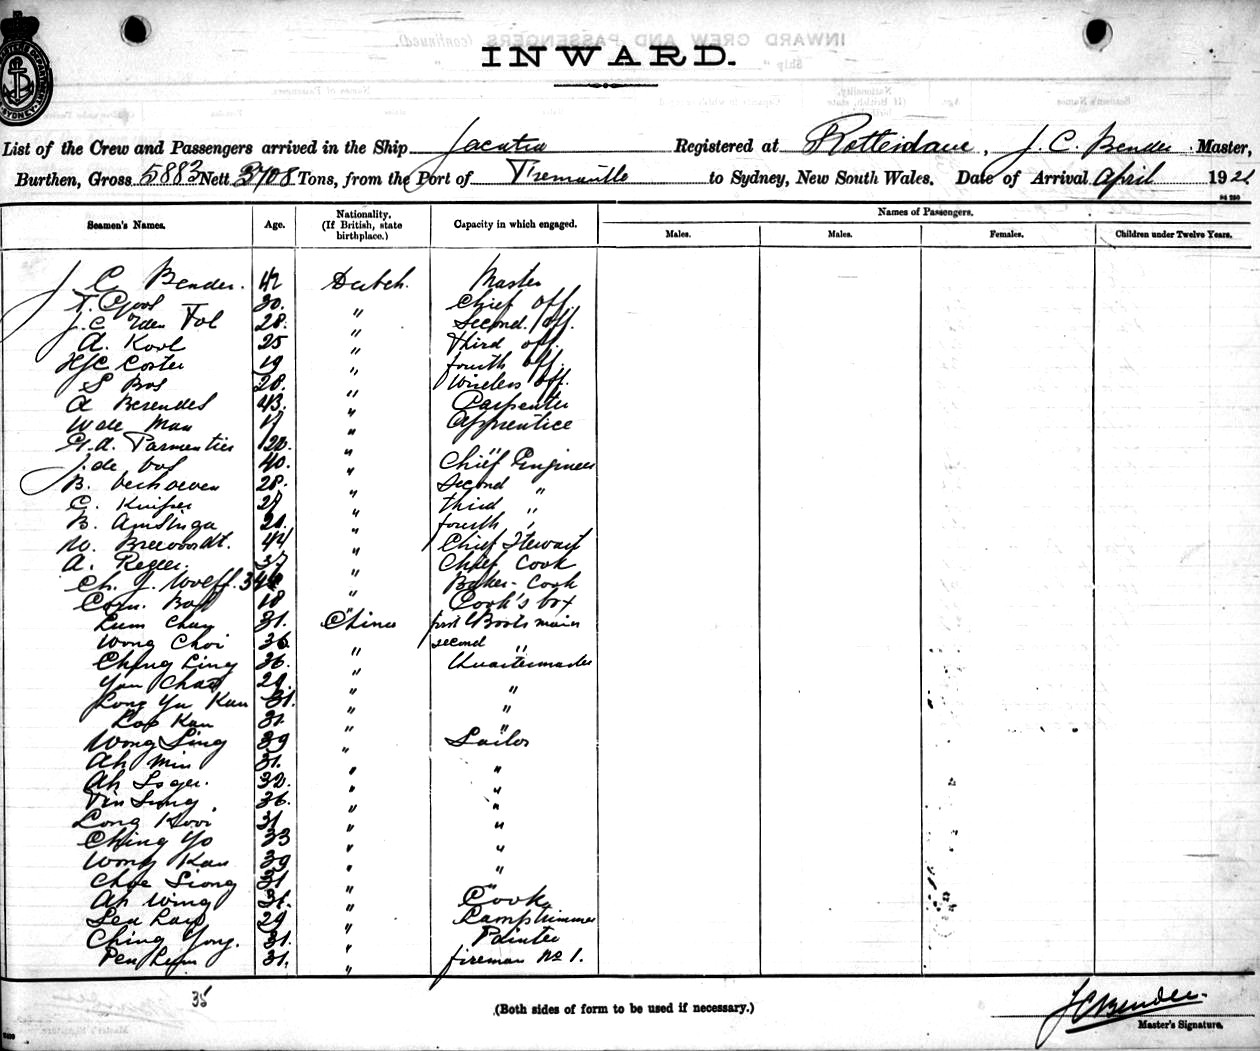 INWARD.
List of the Crew and Passengers arrived in the Ship Jacatra Registered at Rotterdam, J. C. Bender Master,
Burthen, Gross 5883 Nett 3708 Tons, from the Port of Fremantle to Sydney, New South Wales. Date of Arrival April 1921
Seamen's Names. Age. Nationality. (If British, state birthplace.) Capacity in which engaged. Names of Passengers.
Males. Males. Females. Children under Twelve Years.
J C Bender. 42 Dutch. Master
T. 30. " Chief Off.
J. C. Tol 28. " Second. Off.
A. Kool 25 " Third Off.
HJC Coster 19 " fourth Off.
S Bos 28. " Wireless Off.
A Berendes 43. " Carpenter
W de Man 17 " Apprentice
G. A. Parmentier 22. " "
J. de Vos 40. " Chief Engineer
B. Verhoeven 28. " Second "
C. Kuiper 27 " third "
B. Amsinga 21. " fourth "
W. Breevoordt. 44 " Chief Steward
A. 37 " Chief Cook
Ch. J. Wolff. 34 " Baker-Cook
Corn. Bos 18 " Cook's boy
Lum Chay 31. China first Bootsman
Wong Choi 36 " second "
Ching Ling 36. " Quartermaster
Yan Chao 29. " "
Long Yu Kun 31. " "
Lao Kan 31. " "
Wong Sing 39 " Sailor
Ah Min 31. " "
Ah 32. " "
Tin Sung. 36. " "
Long Kooi 31 " "
Ching Yo 33 " "
Wong Kan 39 " "
Choe Siong 31 " "
Ah Wing 31. " Cook
Lea Lau 29 " Lamptrimmer
Ching Yong. 31. " Painter
Pen Lum 31. " fireman No 1.
35
(Both sides of form to be used if necessary.)
J C Bender.
Master's Signature.